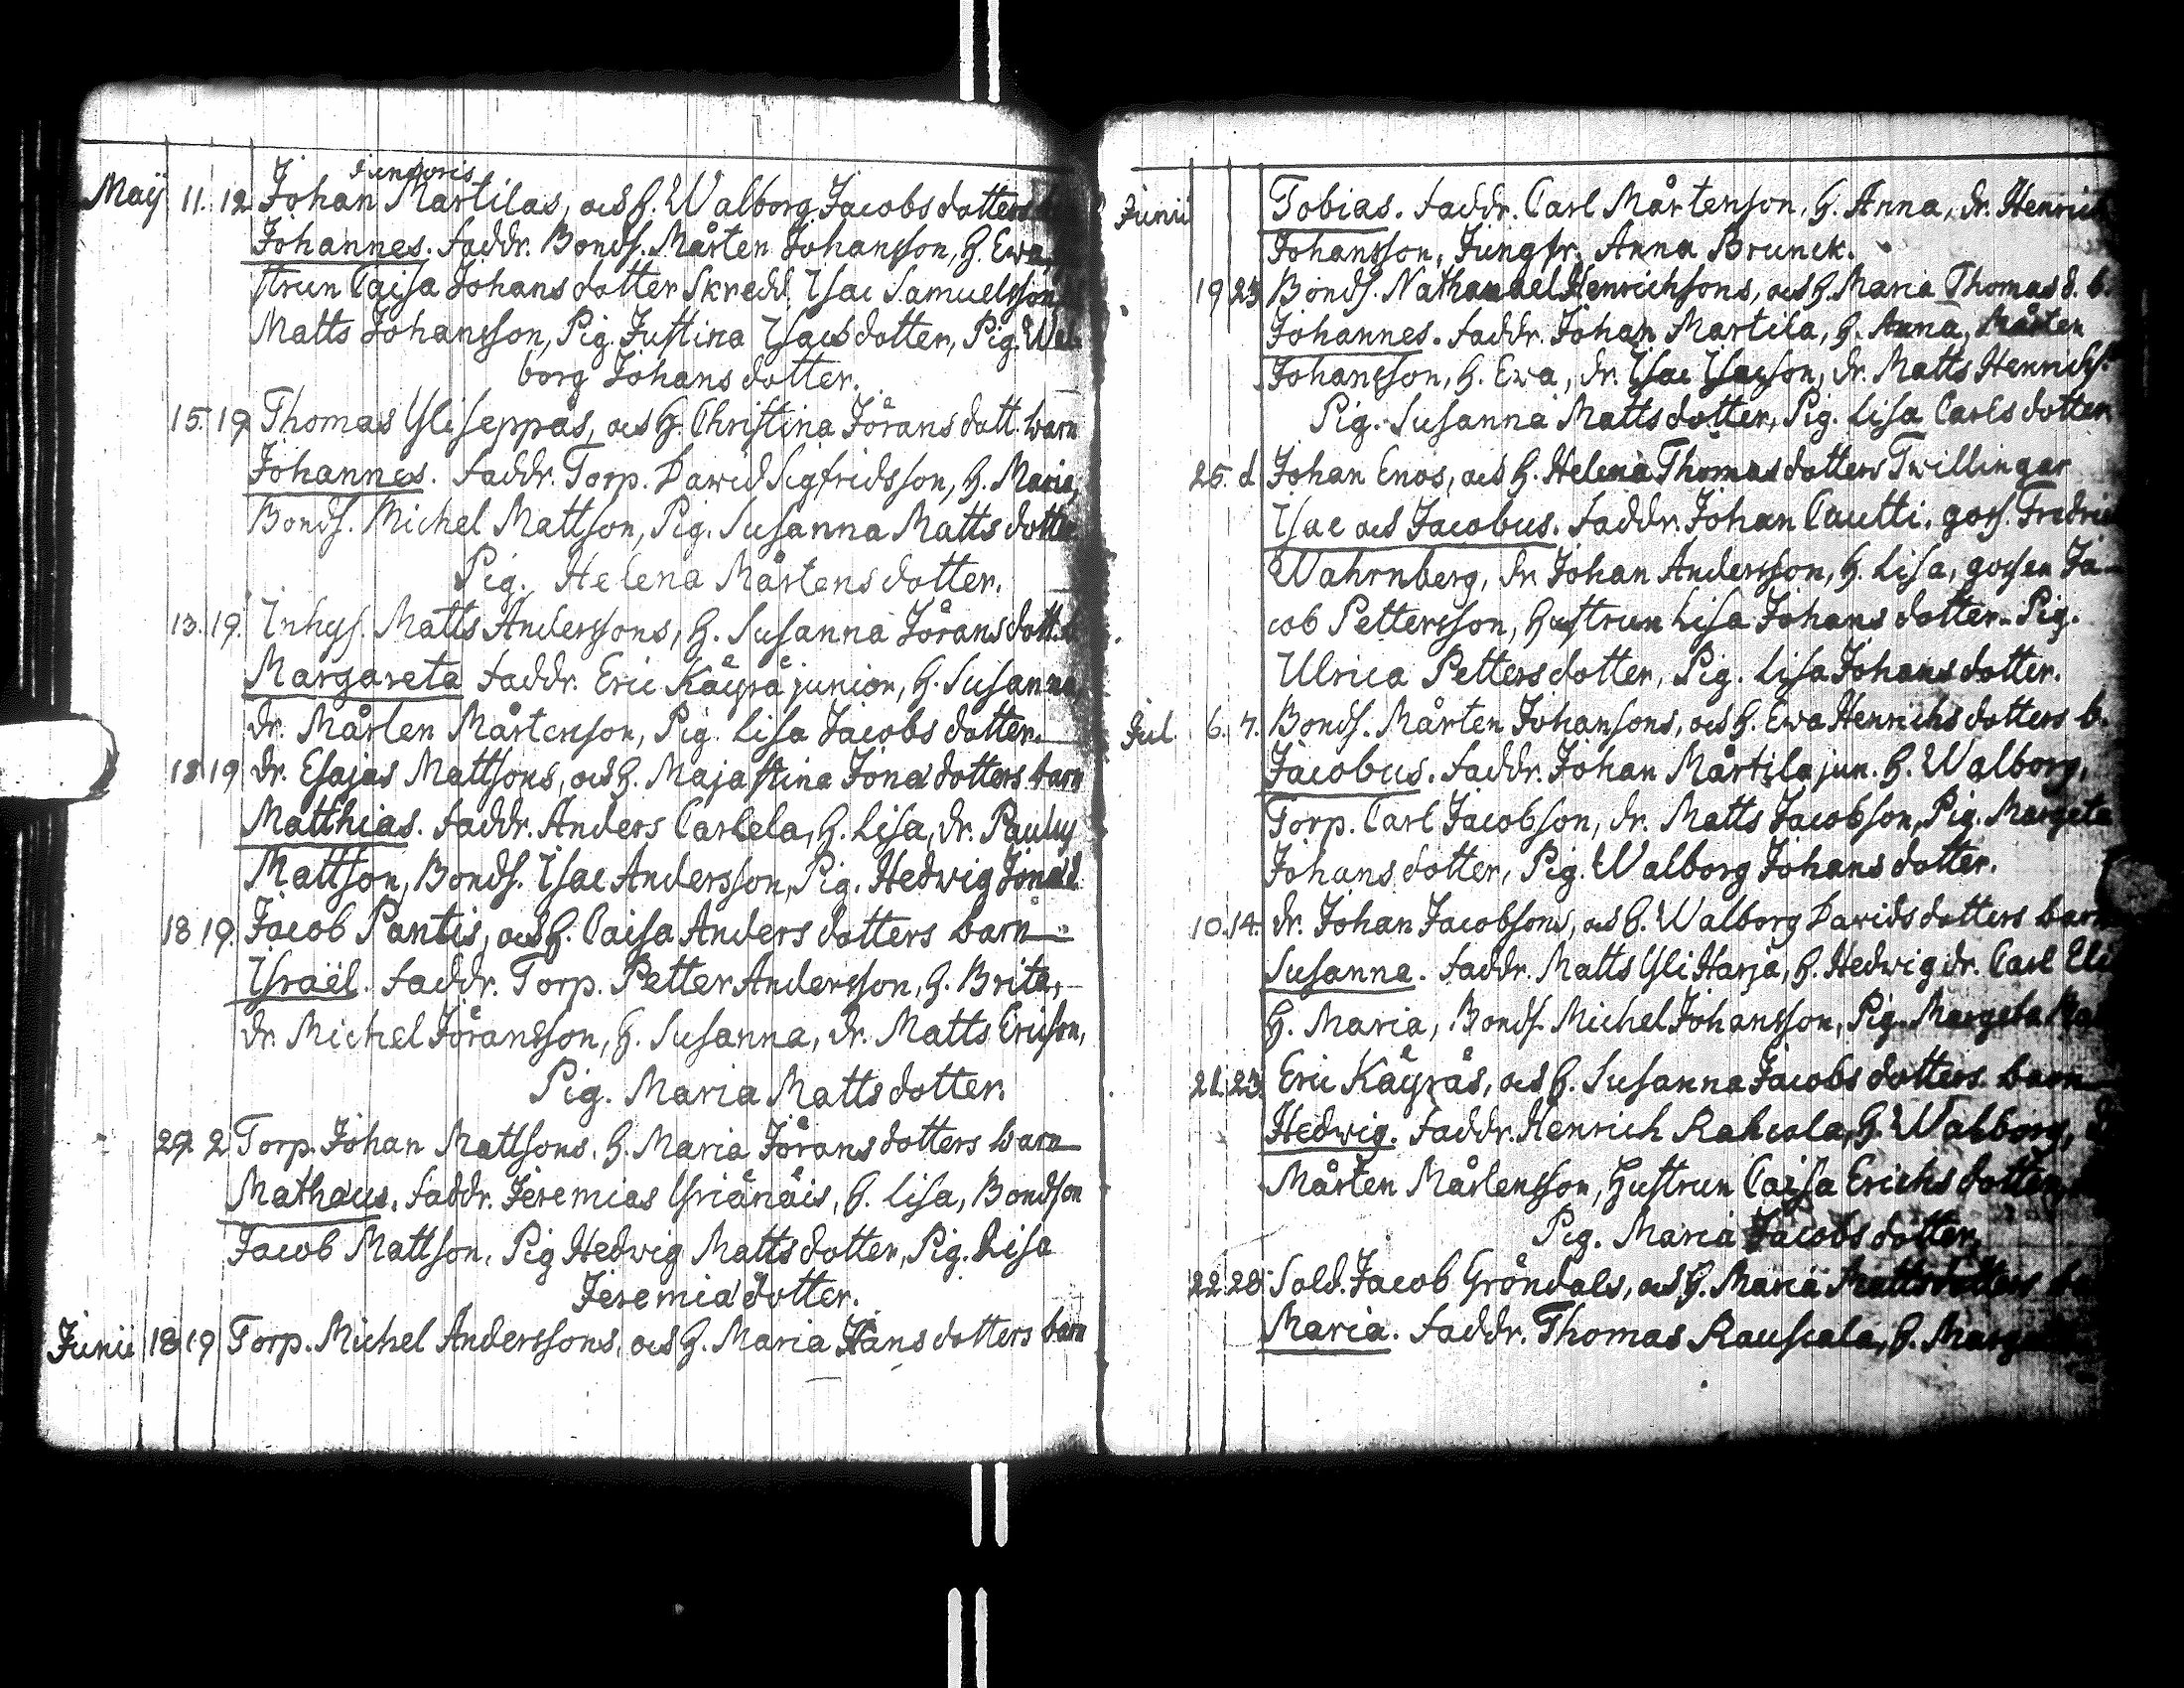 junioris
Maÿ 11. 12. Johan Martilas, och H. Walborg Jacobs dotters
Johannes. faddr. Bonds. Mårten Johansson, H. Ewa,
strun Caisa Johans dotter Skredd. Isac Samuelsson
Matts Johansson, Pig. Justina Isacs dotter, Pig. Wal-
borg Johans dotter.
15. 19. Thomas Yliseppäs, och H. Christina Jörans dott. barn
Johannes. faddr. Torp. Dawid Sigfridsson, H. Maria,
Bonds. Michel Mattson, Pig. Susanna Matts dotter
Pig. Helena Mårtens dotter.
13. 19. Inhys. Matts Anderssons, H. Susanna Jörans dott.
Margareta faddr. Eric Käyrä junior, H. Susanna,
dr. Mårten Mårtenson, Pig. Lisa Jacobs dotter.
18 19 dr. Esajas Mattsons, och H. Maja Stina Jona dotters barn
Matthias. faddr. Anders Carlela, H. Lisa, dr. Paulus
Mattson, Bonds. Isac Andersson, Pig. Hedwig Jona d.
18 19. Jacob Pantis, och H. Caisa Anders dotters barn
Israël. faddr. Torp. Petter Andersson, H. Brita,
dr. Michel Jöransson, H. Susanna, dr. Matts Ericson,
Pig. Maria Matts dotter.
29. 2 Torp. Johan Mattsons, H. Maria Jörans dotters barn
Mathæus. faddr. Jeremias H. Lisa, Bondson
Jacob Mattson, Pig Hedwig Matts dotter, Pig. Lisa
Jeremiæ dotter.
Junii 18 19 Torp. Michel Anderssons, och H. Maria Hans dotters barn
Junii Tobias. faddr. Carl Mårtenson, H. Anna, dr. Henrich
Johansson, Jungfr. Anna Brunck.
19 23 Bonds. Nathanael Henrichsons, och H. Maria Thomas d. b.
Johannes. faddr. Johan Martila, H. Anna, Mårten
Johansson, H. Ewa, dr. Isac Isacson, dr. Matts Henrichs.
Pig. Susanna Matts dotter, Pig. Lisa Carls dotter
25. d. Johan Enos, och H. Helena Thomas dotters Twillingar
Isac och Jacobus. faddr. Johan Cautti, goss. Fredric
Wahrnberg, dr. Johan Andersson, H. Lisa, gossen Ja-
cob Pettersson, Hustrun Lisa Johans dotter. Pig.
Ulrica Petters dotter, Pig. Lisa Johans dotter.
Jul 6. 7. Bonds. Mårten Johansons, och H. Ewa Henrichs dotters b.
Jacobus. faddr. Johan Mårtila jun. H. Walborg,
Torp. Carl Jacobson, dr. Matts Jacobson, Pig. Margeta
Johans dotter, Pig. Walborg Johans dotter.
10. 14. dr. Johan Jacobsons, och H. Walborg Davids dotters barn
Susanna. faddr. Matts Yli Harja, H. Hedwig dr. Carl
H. Maria, Bonds. Michel Johansson, Pig. Margeta
21. 23. Eric Käyräs, och H. Susanna Jacobs dotters barn
Hedwig. faddr. Henrich Rahcola, H. Walborg,
Mårten Mårtensson, Hustrun Caisa Erichs dotter,
Pig. Maria Jacobs dotter,
22. 28. Sold. Jacob Gröndals, och H. Maria Matts dotters
Maria. faddr. Thomas Rauscala, H.